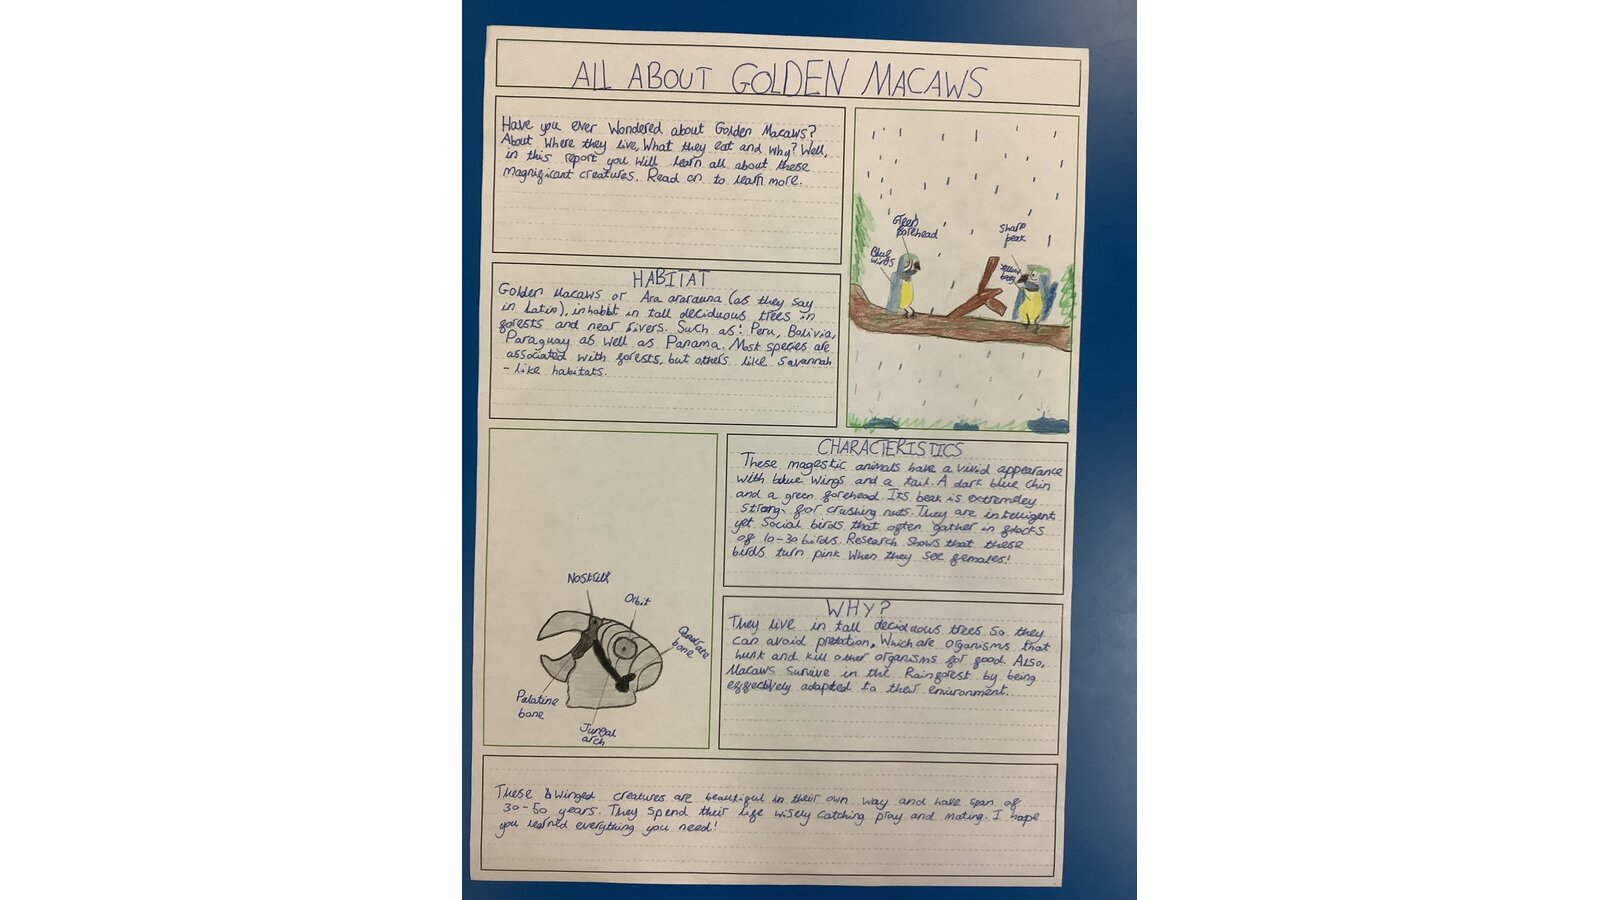 ALL ABOUT GOLDEN MACAWS
Have you ever Wondered about Golden Macaws?
About Where they live, What they eat and Why? Well,
in this report you will learn all about these
magnificant creatures. Read on to learn more.
Green
forehead
Blue
wings
Sharp
beak
Yellow
body
HABITAT
Golden Macaws or Ara ararauna (as they say
in Latin), inhabit in tall deciduous trees in
forests and near rivers. Such as: Peru, Bolivia,
Paraguay as well as Panama. Most species are
associated with forests, but others like Savannah
- like habitats.
CHARACTERISTICS
These magestic animals have a vivid appearance
with blue wings and a tail. A dark blue chin
and a green forehead. Its beak is extremeley
strong for crushing nuts. They are intelligent
yet Social birds that often gather in flocks
of 10-30 birds. Research shows that these
birds turn pink When they see females!
Nostrill
Orbit
Quadrate
bone
Palatine
bone
Jungal
arch
WHY?
They live in tall deciduous trees So they
can avoid pretation, Which are organisms that
hunt and kill other organisms for food. Also,
Macaws survive in the Rainforest by being
effectively adapted to their environment.
These winged creatures are beautiful in their own way and have span of
30-50 years. They spend their life wisely catching pray and mating. I hope
you learned everything you need!